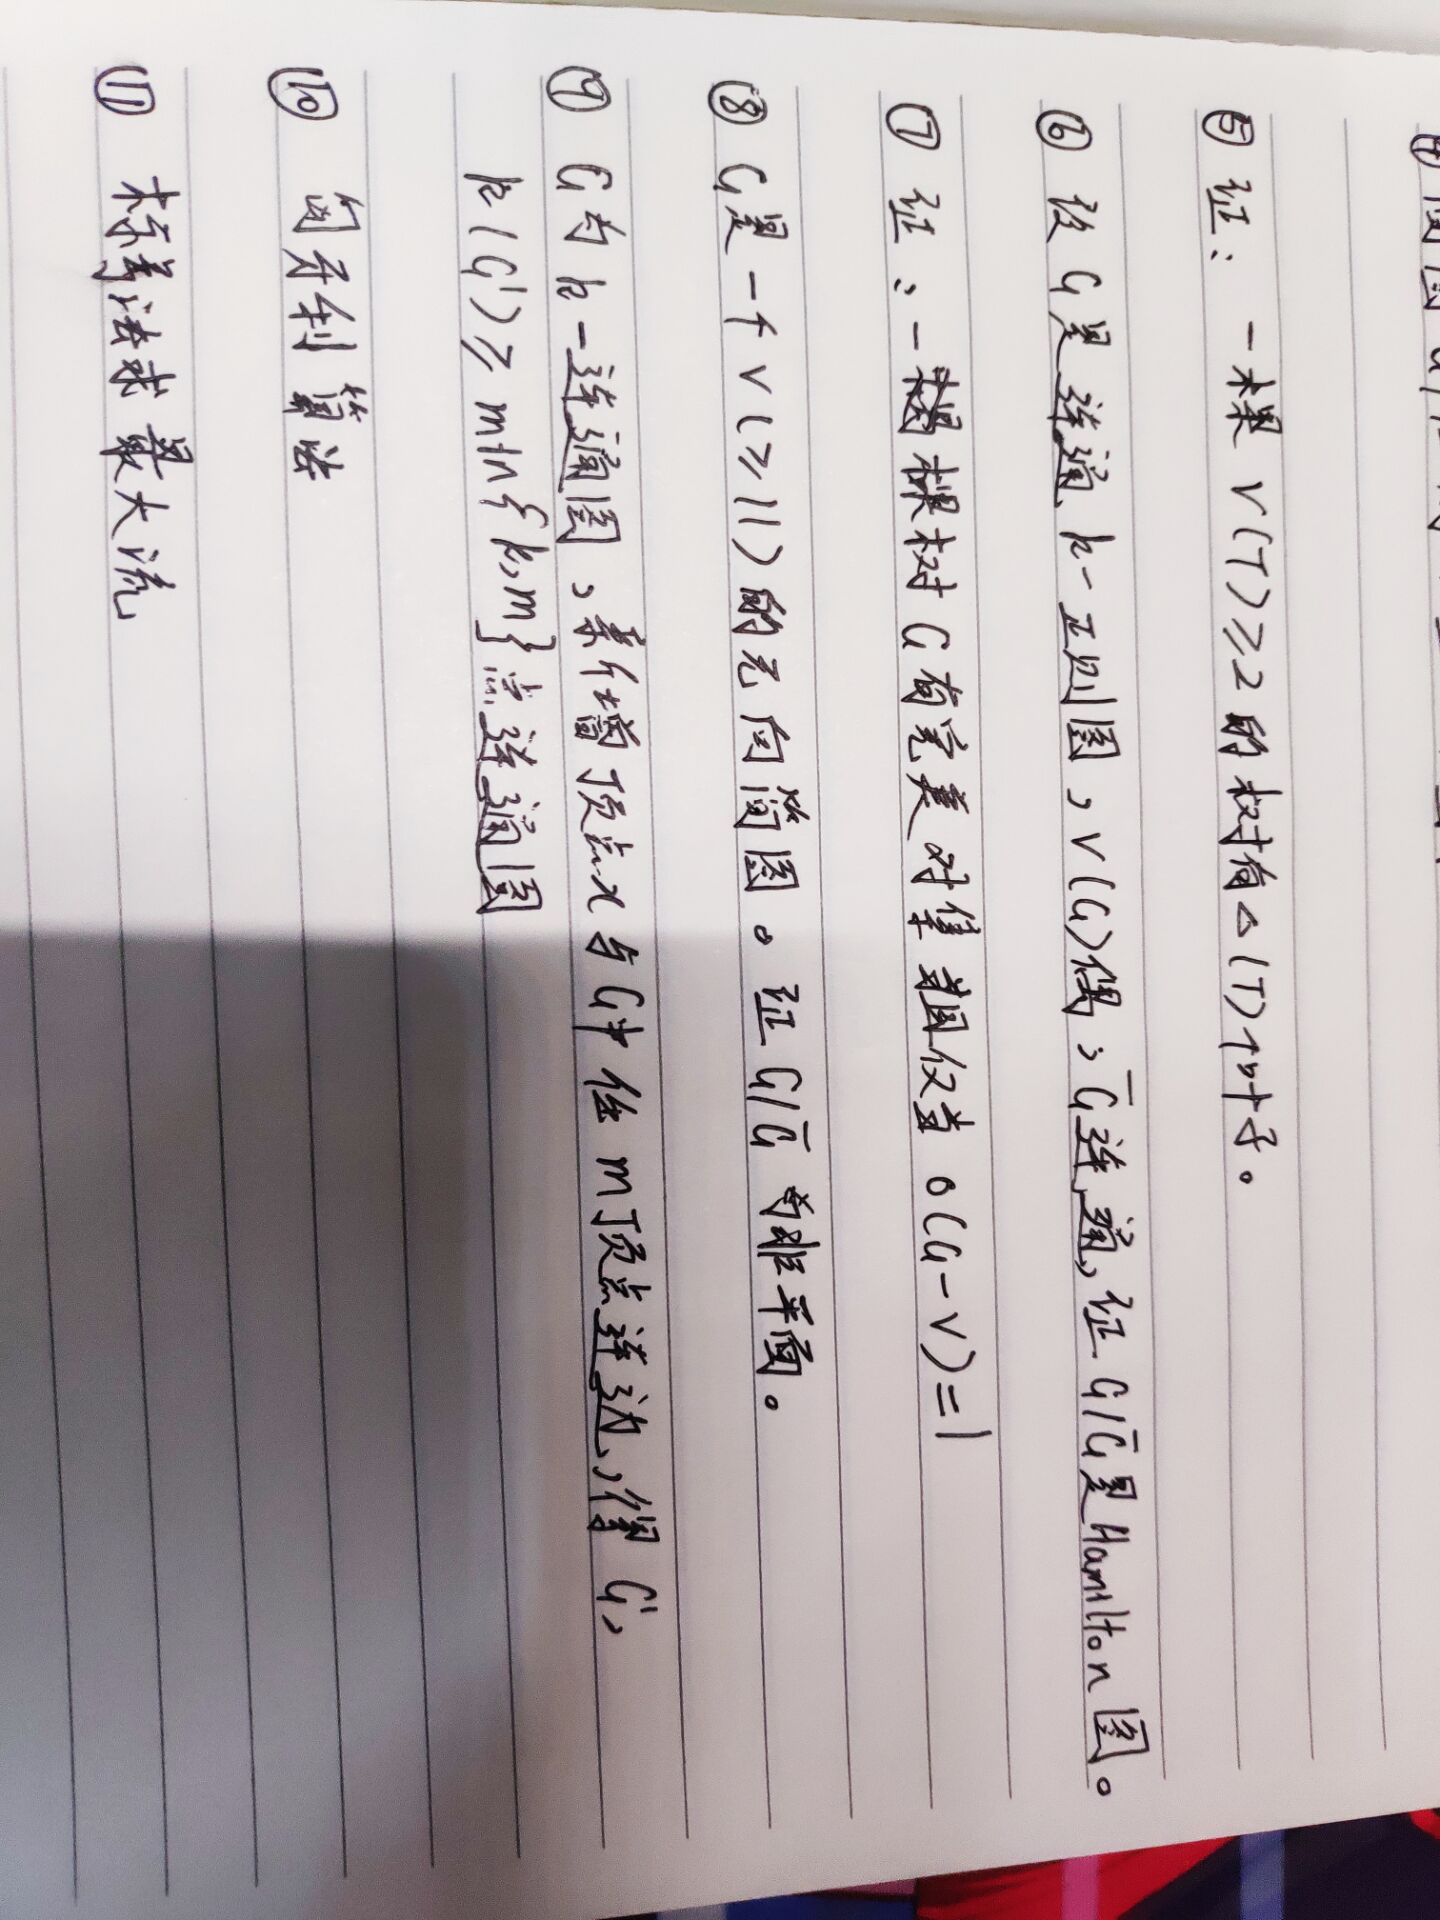 ④ 简图 G
⑤ 证: 一棵 ν(T)≥2 的树有△(T)个叶子。
⑥ 设 G 是连通 k-正则图,ν(G)偶,G̅连通,证 G/G̅是Hamilton图。
⑦ 证:一棵树 G 有完美对集 当且仅当 o(G-v)=1
⑧ G是一个 ν(≥11)的无向简图。证 G/G̅ 为非平面。
⑨ G为 k-连通图,新增顶点x与G中任m顶点连边,得 G',
k(G')≥ min{k,m}点连通图
⑩ 匈牙利算法
⑪ 标号法求最大流